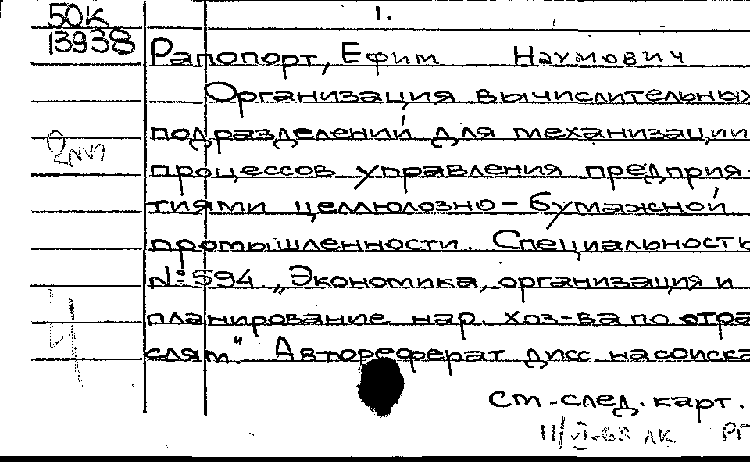 50к
1.
13938
Рапопорт, Ефим Наумович
Организация вычислительных
подразделений для механизации
процессов управления предприя-
тиями целлюлозно-бумажной
промышленности. Специальность
№:594 „Экономика, организация и
планирование нар. хоз-ва по отра
слям". Автореферат дисс. на соиска
см-след. карт.